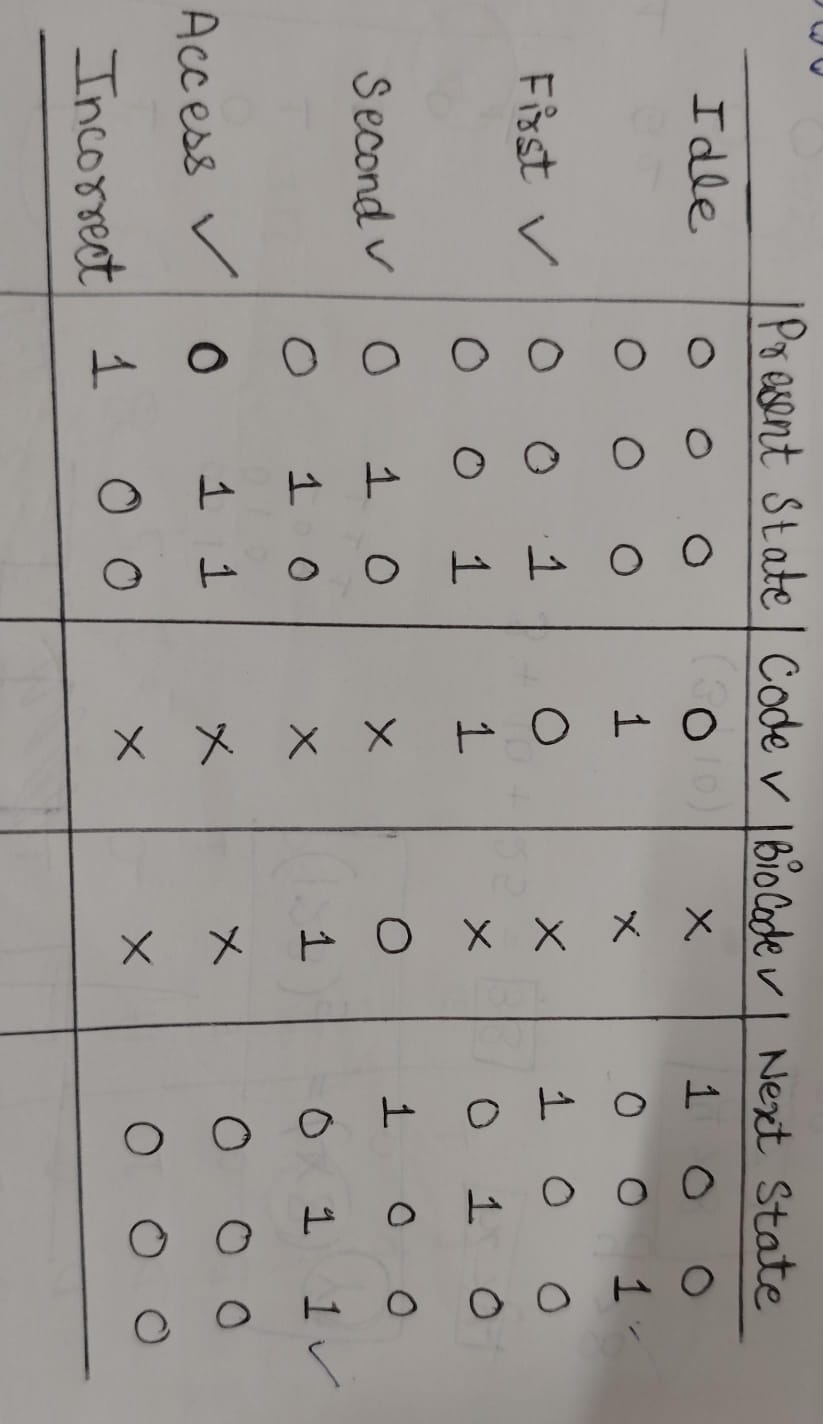 Present State Code ✓ BioCode ✓ Next State
Idle 0 0 0 0 × 1 0 0
0 0 0 1 × 0 0 1
First ✓ 0 0 1 0 × 1 0 0
0 0 1 1 × 0 1 0
Second ✓ 0 1 0 × 0 1 0 0
0 1 0 × 1 0 1 1 ✓
Access ✓ 0 1 1 × × 0 0 0
Incorrect 1 0 0 × × 0 0 0